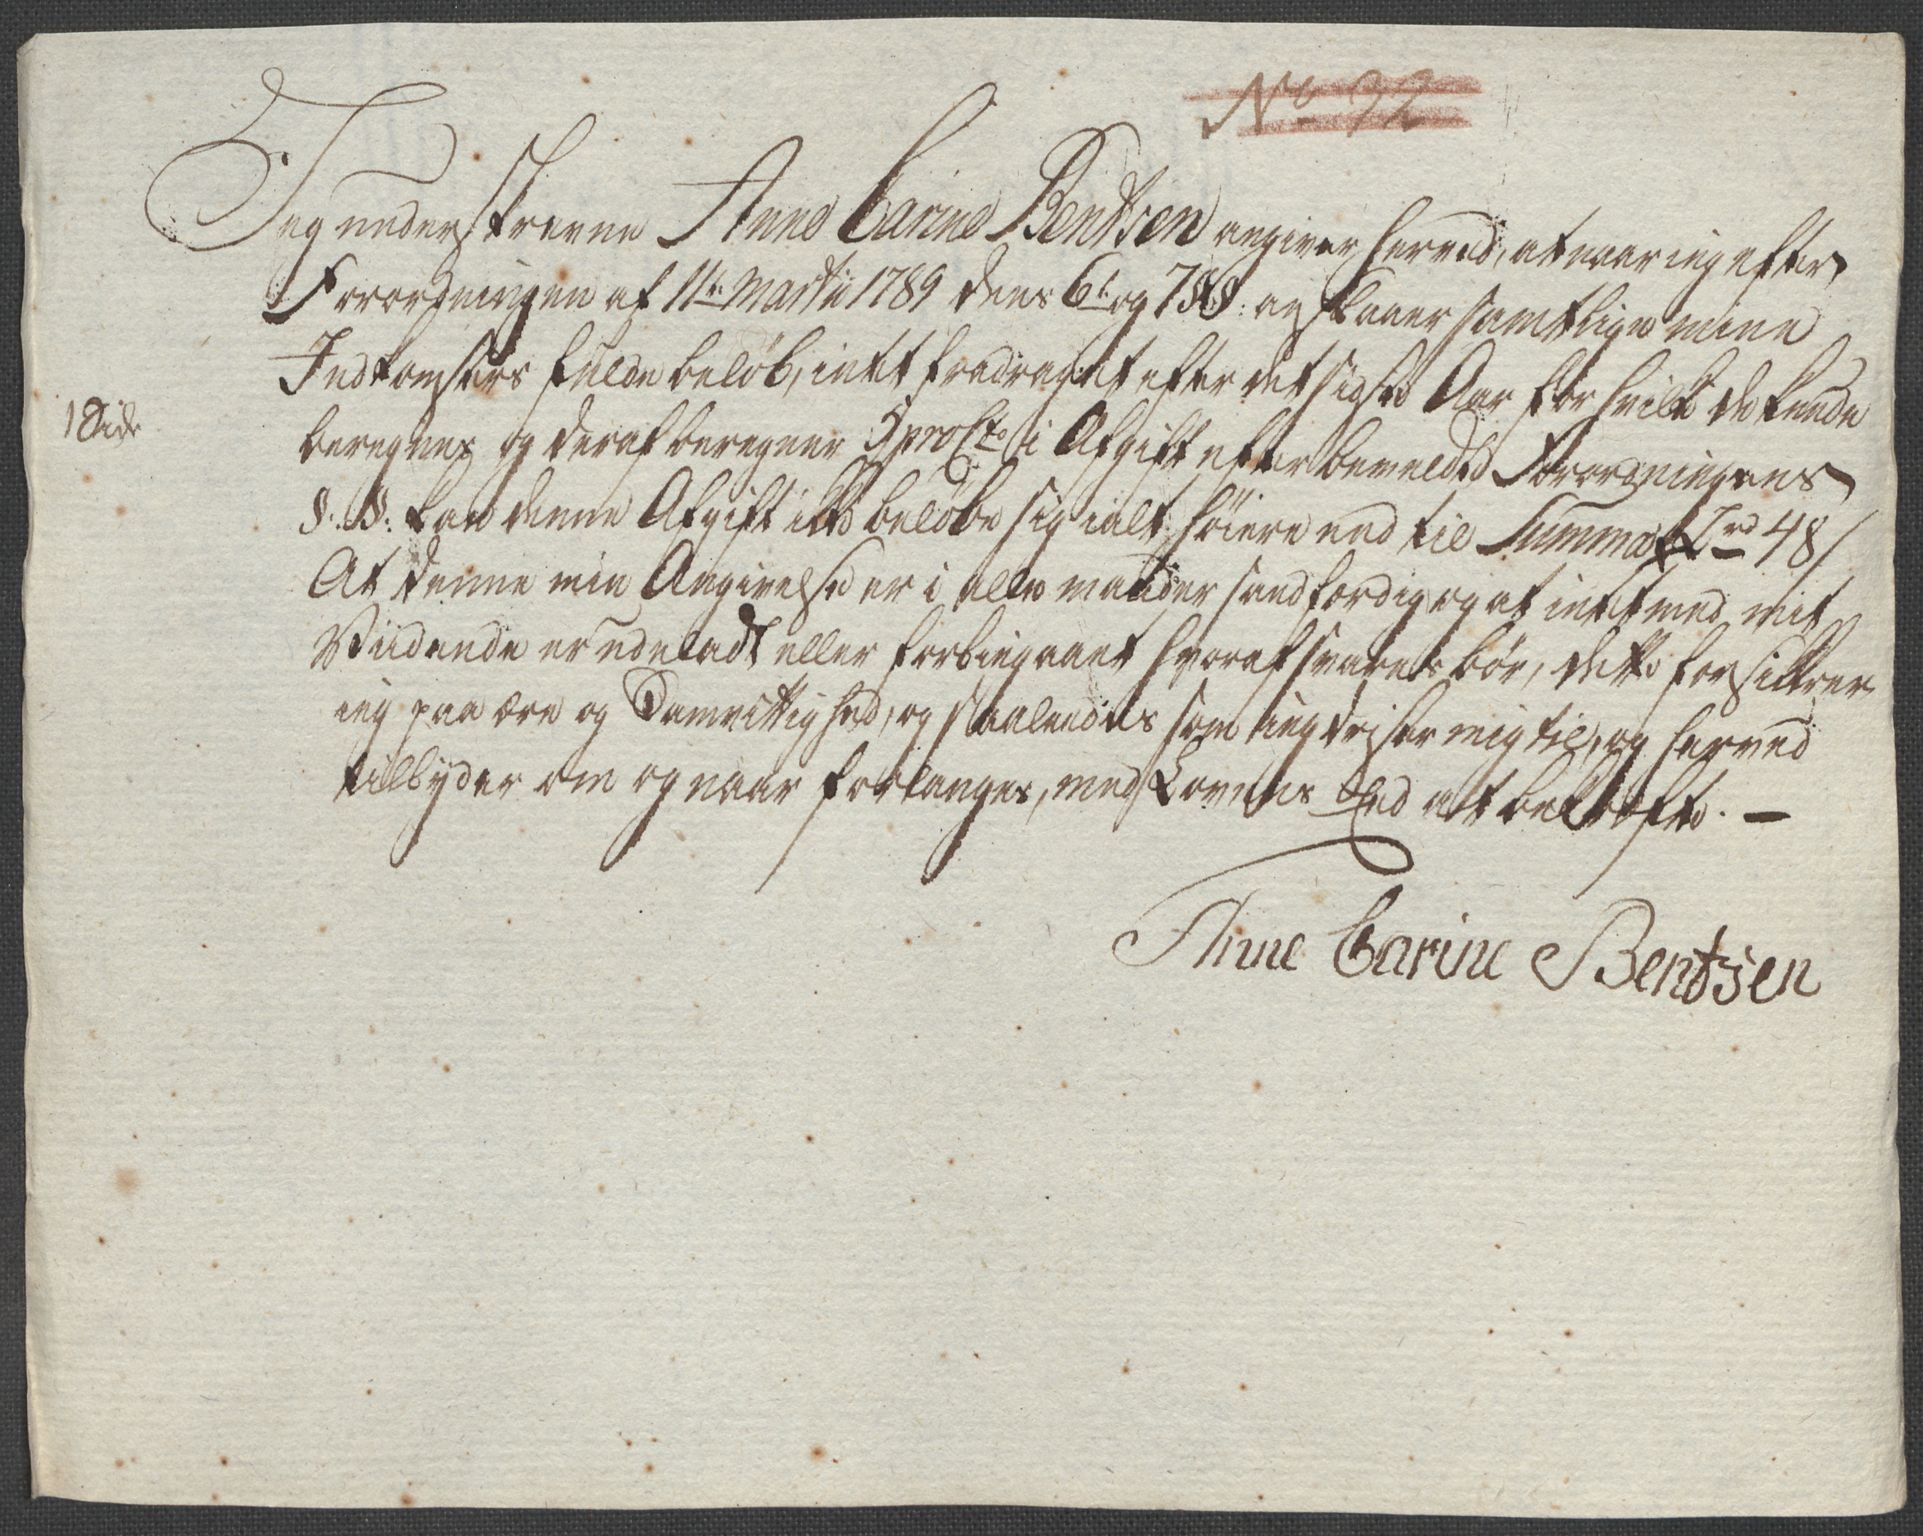 No 32
Jeg underskrevne Anne Carine Bentsen angiver herved, at naar ieg efter
Forordningen af 11te Martii 1789 dens 6te og 7 §§: anslaaer samtlige mine
Indkomsters fulde beløb, intet fradraget efter det sidste Aar for hvilke de kunde
1 Side
beregnes og deraf beregner 5 proCto i Afgift efter bemeldte Forordningens
§. §: kan denne Afgift ikke beløbe sig ialt høiere end til Summa 48 /
At denne min Angivelse er i alle maader sandfærdig og at intet med mit
Viidende er udeladt eller forbiegaaet hvoraf svares bør, dette forsikkrer
ieg paa ære og Samvittighed, og saaledes som ieg trøster mig til, og herved
tilbyder om og naar forlanges, med Lovens Eed at bekræfte. —
Anne Carine Bentzen